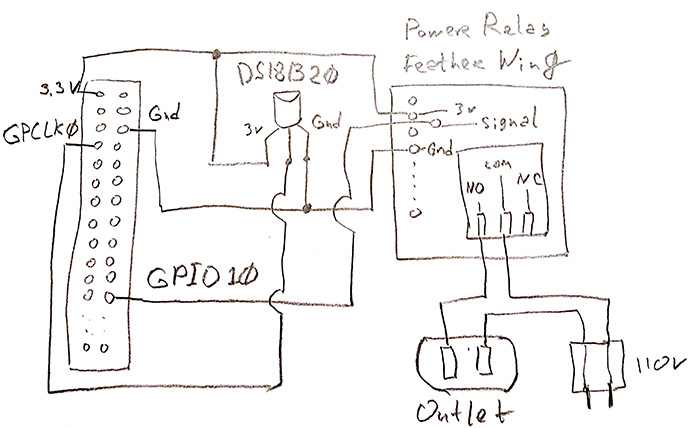 Powere Relay
Feather Wing
DS18B20
3.3V
Gnd
GPCLK0
3v
Gnd
3v
Signal
Gnd
COM
NO
NC
GPIO10
110V
Outlet